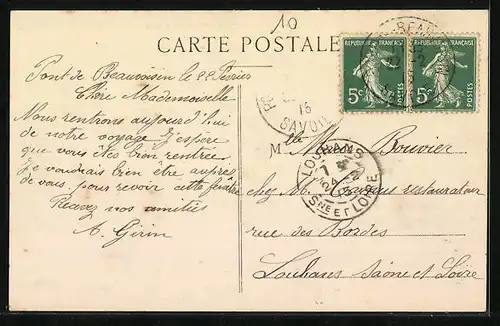 10
CARTE POSTALE
REPUBLIQUE FRANÇAISE
5c
POSTES
REPUBLIQUE FRANÇAISE
5c
POSTES
Pont de Beauvoisin le 22 Février
Chère Mademoiselle
Nous rentrons aujourd'hui
de notre voyage J'espère
que vous êtes bien rentrée.
Je voudrais bien être auprès
de vous, pour revoir cette
Recevez vos amitiés
A. Girin
15
SAVOIE
LOUHANS
SNE ET LOIRE
Mlle M. Bouvier
chez M. restaurateur
rue des Bordes
Louhans Saône et Loire